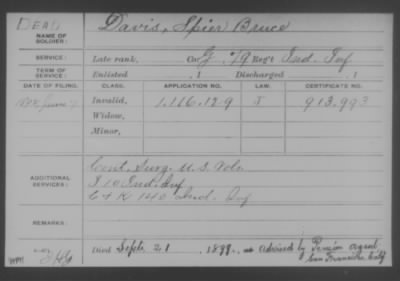 DEAD
NAME OF SOLDIER: Davis, Spier Bruce
SERVICE: Late rank, Co. G, 79 Reg't Ind. Inf
TERM OF SERVICE: Enlisted , 1 Discharged , 1
DATE OF FILING. CLASS. APPLICATION NO. LAW. CERTIFICATE NO.
June Invalid, 1,116,129 J 913,993
Widow,
Minor,
ADDITIONAL SERVICES: Cont. Surg. U.S. Vols.
I 10 Ind. Inf
C & K 143 Ind. Inf
REMARKS:
Died Sept. 21 1899. advised by Pension agent
San Francisco, Calif